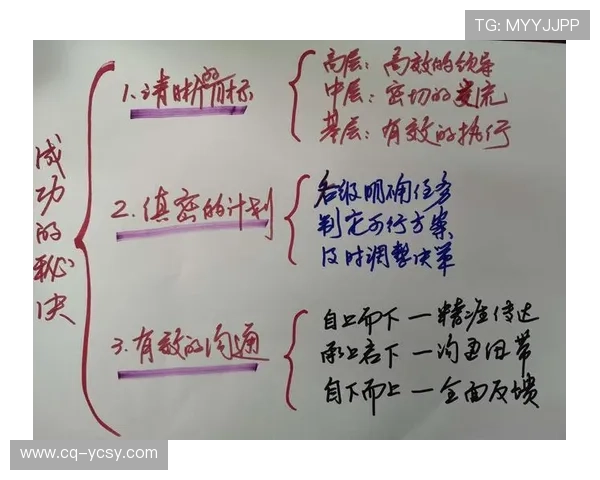 TG: MYYJJPP
成功的秘决
1.清晰的目标
高层：高效的领导
中层：密切的交流
基层：有效的执行
2.缜密的计划
各级明确任务
判定可行方案
及时调整决策
3.有效的沟通
自上而下—精准传达
承上启下—沟通纽带
自下而上—全面反馈
www.cq-ycsy.com